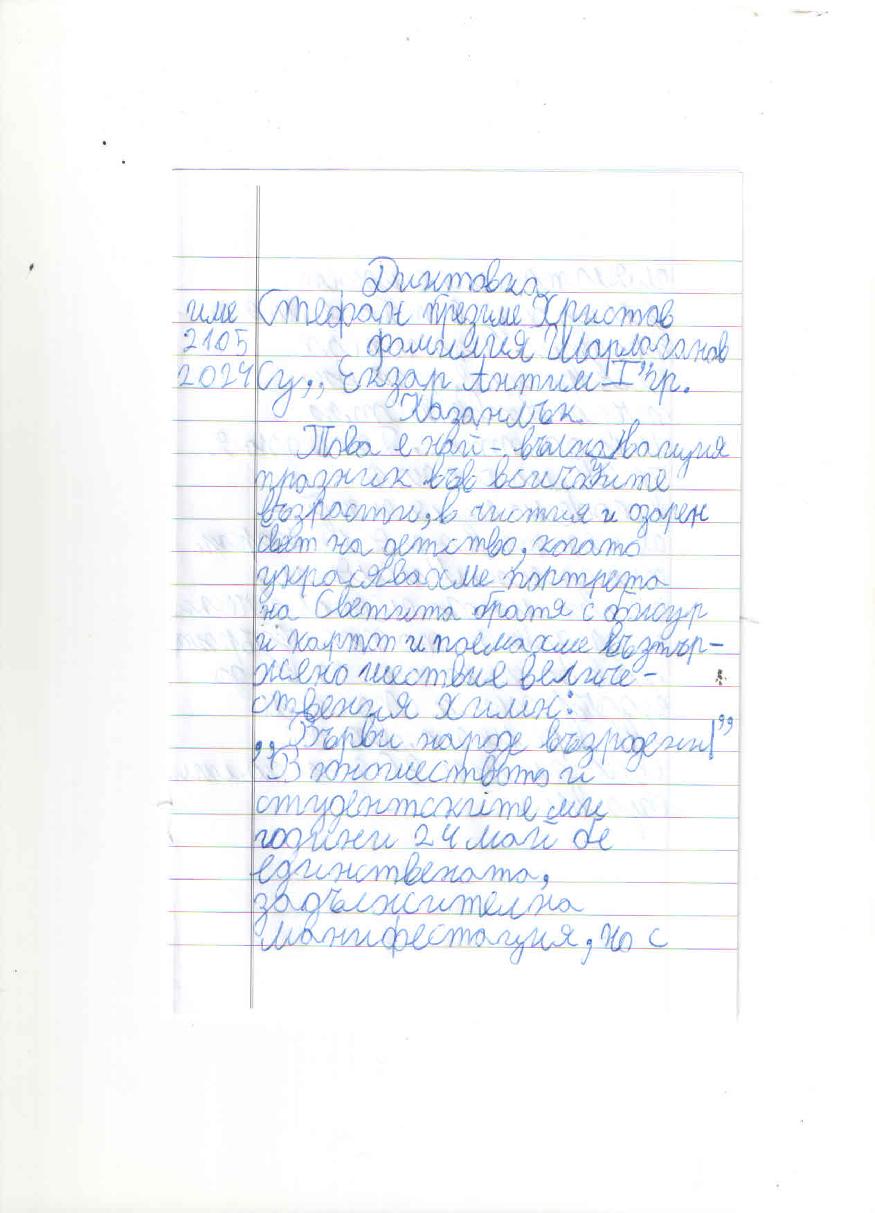 Диктовка
име Стефан презиме Христов
2105 фамилия Шарлаганов
2024 Су,, Екзар Антим I" гр.
Казанлък.
Това е най-вълнуващия
празник във всичките
възрасти, в чистия и озарен
свят на детство, когато
украсявахме портрета
на Светита братя с фигур
и картон и поемахме възтър-
жено шествие величе-
ствения химн:
,,Върви народе възродени!"
В юношеството и
студентските ми
години 24 май бе
единствената,
задължителна
манифестация, но с